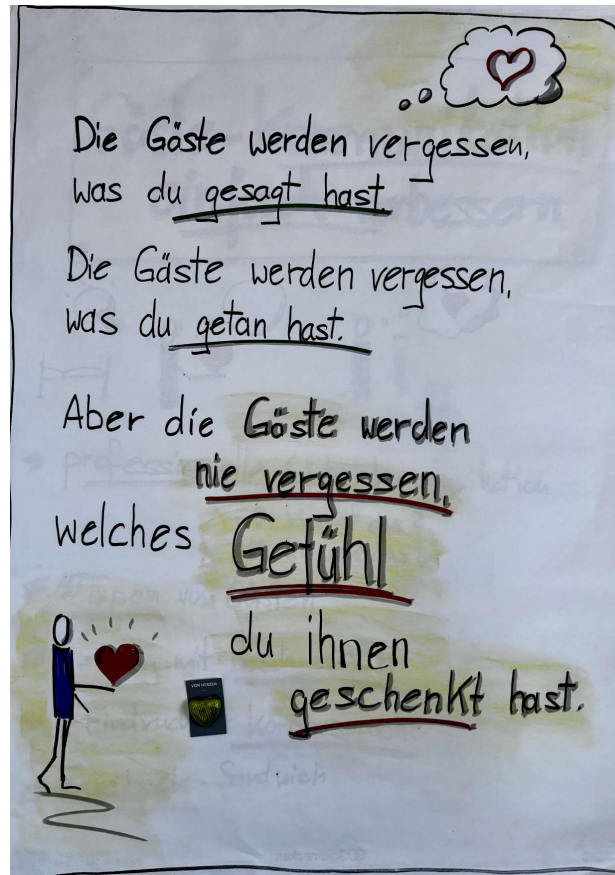 Die Gäste werden vergessen,
was du gesagt hast.
Die Gäste werden vergessen,
was du getan hast.
Aber die Gäste werden
nie vergessen,
welches Gefühl
du ihnen
VON HERZEN
geschenkt hast.
Sandwich